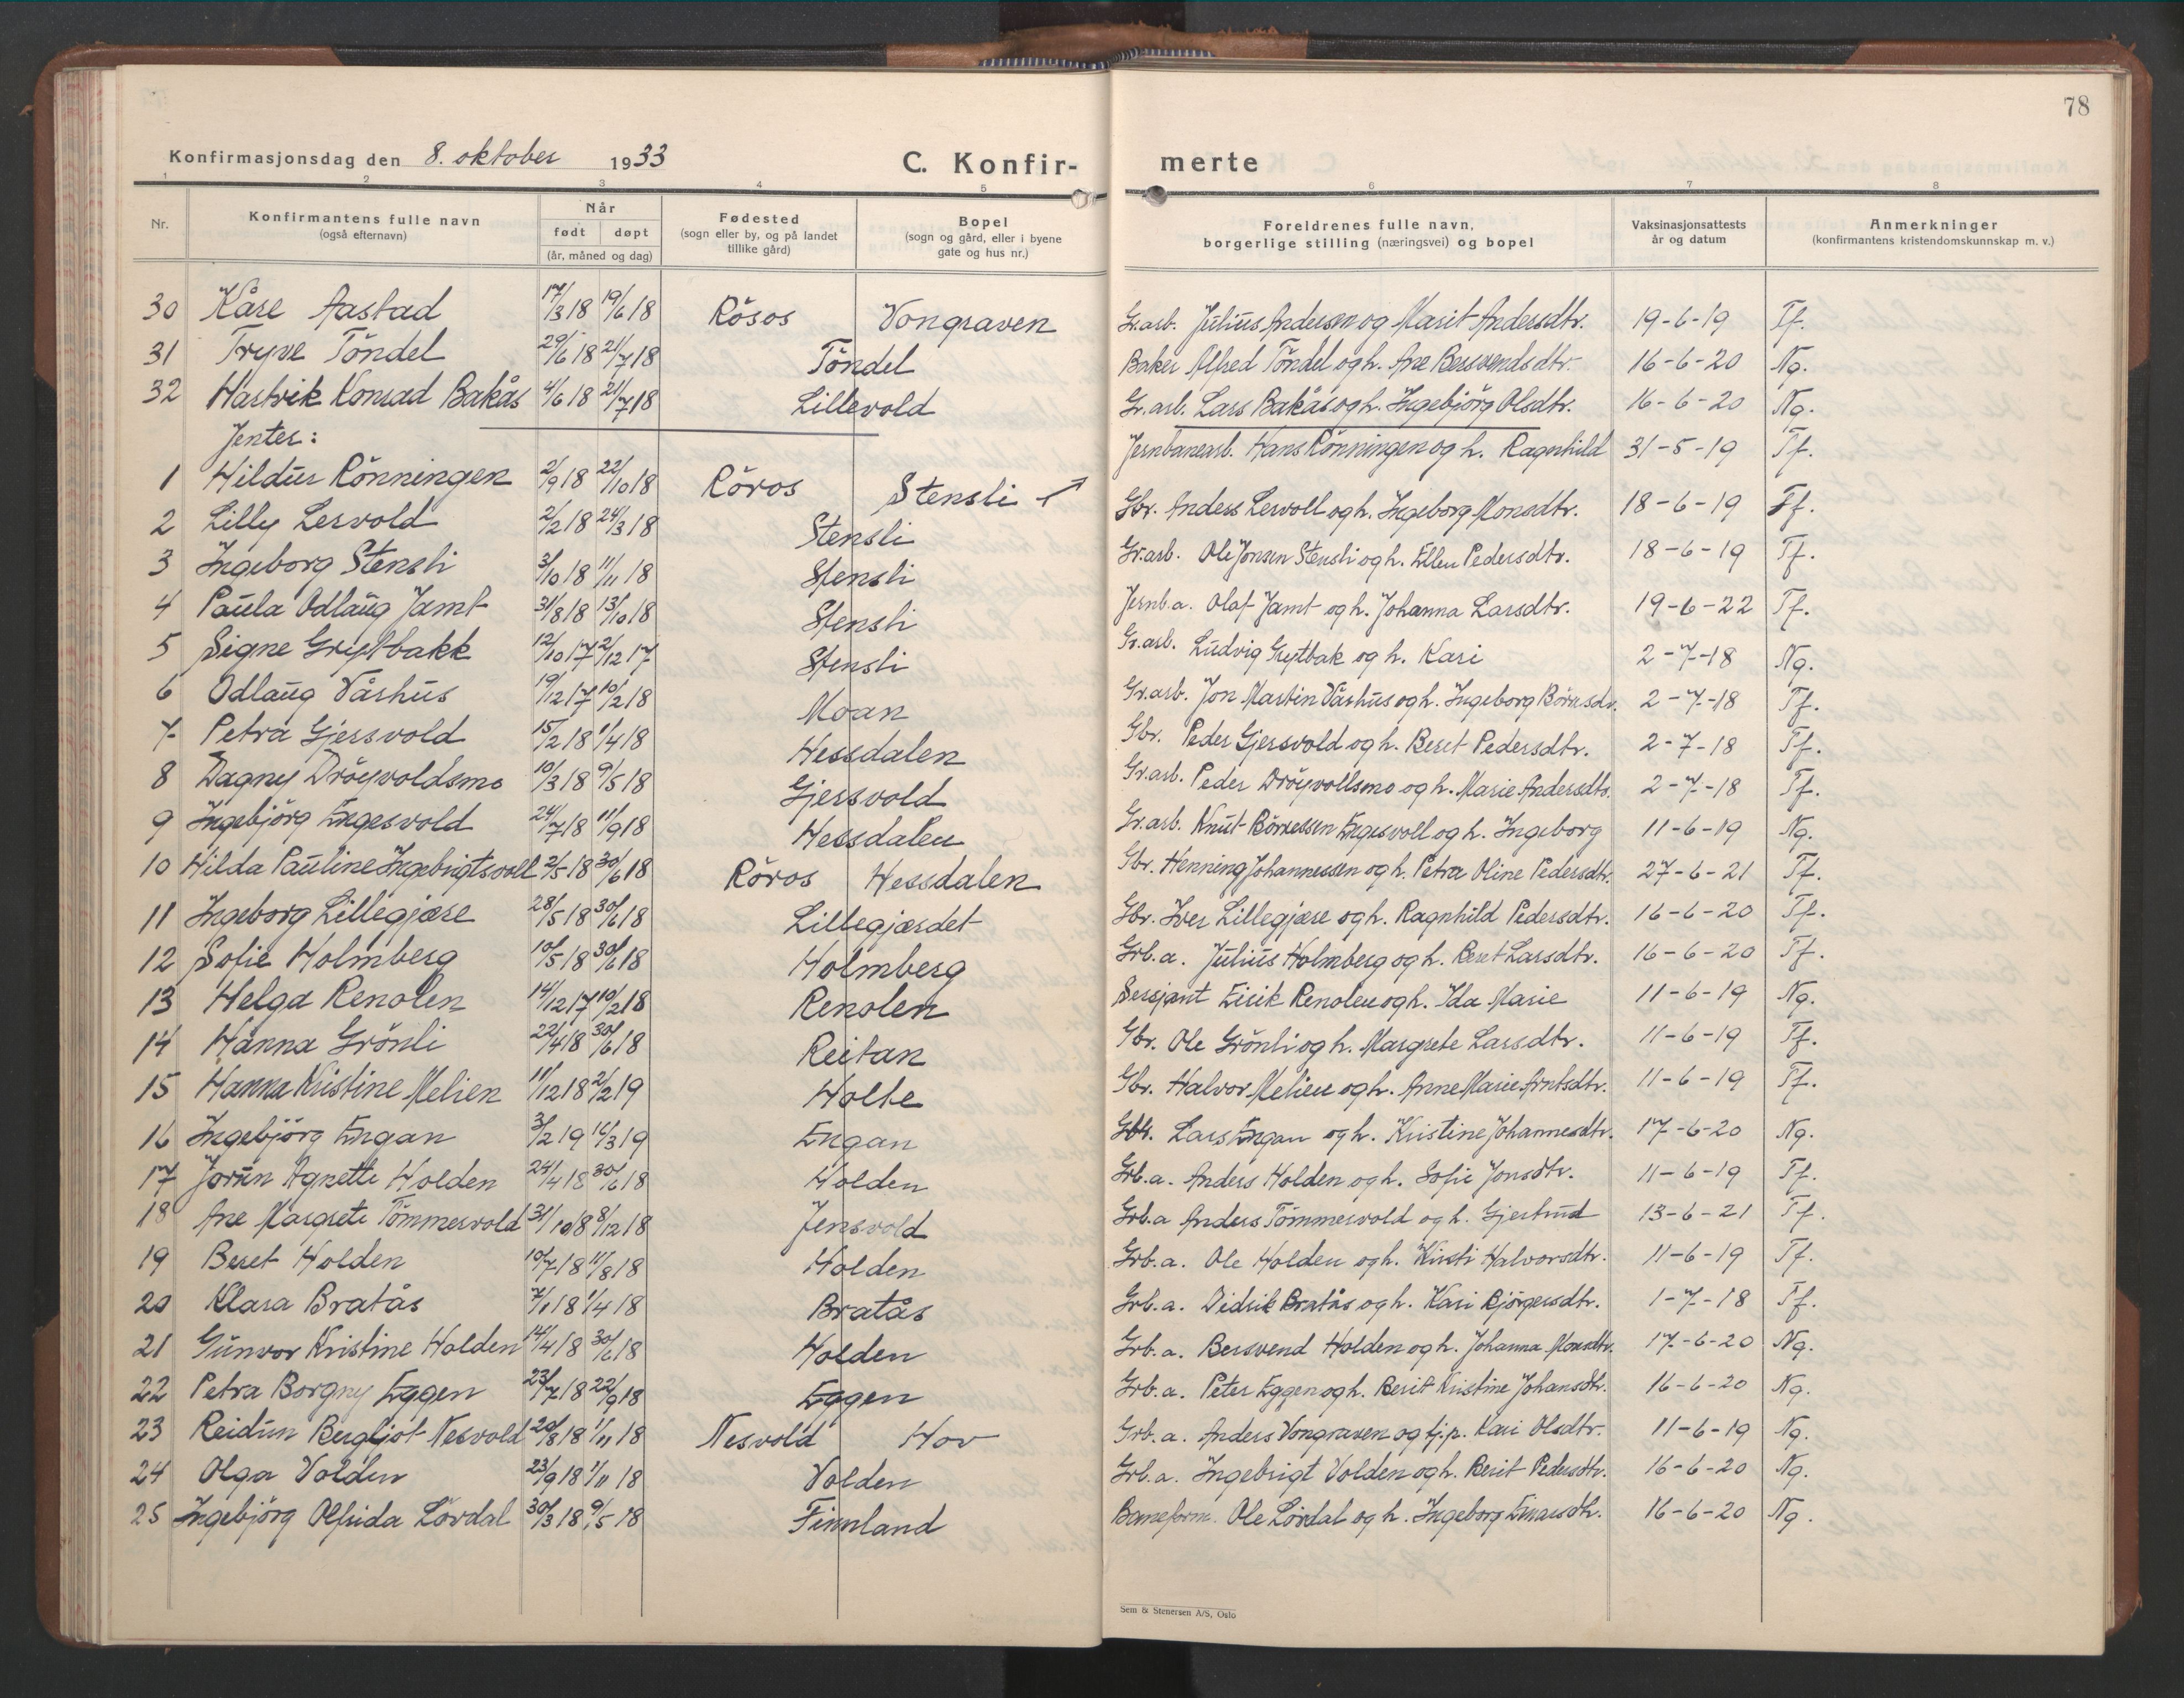 78
Konfirmasjonsdag den 8. oktober 1933 C. Konfir- merte
1 2 3 4 5 6 7 8
Nr. Konfirmantens fulle navn (også efternavn) Når født døpt (år, måned og dag) Fødested (sogn eller by, og på landet tillike gård) Bopel (sogn og gård, eller i byene gate og hus nr.) Foreldrenes fulle navn, borgerlige stilling (næringsvei) og bopel Vaksinasjonsattests år og datum Anmerkninger (konfirmantens kristendomskunnskap m. v.)
30 Kåre Aastad 17/3 18 19/6 18 Röros Vongraven Gr.arb. Julius Andersen og Marit Andersdtr. 19-6-19 Tf.
31 Tryve Töndel 29/6 18 21/7 18 Töndel Baker Alfred Töndel og h. Ane Bersvendsdtr. 16-6-20 Ng.
32 Hartvik Konrad Bakås 4/6 18 21/7 18 Lillevold Gr.arb. Lars Bakås og h. Ingebjörg Olsdtr. 16-6-20 Ng.
Jenter:
1 Hildur Rönningen 2/9 18 22/10 18 Röros Stensli Jernbanearb. Hans Rönningen og h. Ragnhild 31-5-19 Tf.
2 Lilly Lervold 2/2 18 24/3 18 Stensli Gbr. Anders Lervoll og h. Ingeborg Monsdtr. 18-6-19 Tf.
3 Ingeborg Stensli 3/10 18 11/11 18 Stensli Gr.arb. Ole Jonsen Stensli og h. Ellen Pedersdtr. 18-6-19 Tf.
4 Paula Odlaug Jamt 31/8 18 13/10 18 Stensli Jernb.a. Olaf Jamt og h. Johanna Larsdtr. 19-6-22 Tf.
5 Signe Grytbakk 12/10 17 2/12 17 Stensli Gr.arb. Ludvig Grytbak og h. Kari 2-7-18 Ng.
6 Odlaug Vårhus 19/12 17 10/2 18 Moan Gr.arb. Jon Martin Vårhus og h. Ingeborg 2-7-18 Tf.
7 Petra Gjersvold 15/2 18 1/4 18 Hessdalen Gbr. Peder Gjersvold og h. Beret Pedersdtr. 2-7-18 Tf.
8 Dagny Dröyvoldsmo 10/3 18 9/5 18 Gjersvold Gr.arb. Peder Dröyvollsmo og h. Marie Andersdtr. 2-7-18 Tf.
9 Ingebjörg Engesvold 24/7 18 11/9 18 Hessdalen Gr.arb. Knut Börressen Engesvoll og h. Ingeborg 11-6-19 Ng.
10 Hilda Pauline Ingebrigtsvoll 2/5 18 30/6 18 Röros Hessdalen Gbr. Henning Johannessen og h. Petra Oline Pedersdtr. 27-6-21 Tf.
11 Ingeborg Lillegjære 28/5 18 30/6 18 Lillegjærdet Gbr. Iver Lillegjære og h. Ragnhild Pedersdtr. 16-6-20 Tf.
12 Sofie Holmberg 10/5 18 30/6 18 Holmberg Grb.a. Julius Holmberg og h. Beret Larsdtr. 16-6-20 Tf.
13 Helga Renolen 14/12 17 10/2 18 Renolen Sersjant Eirik Renolen og h. Ida Marie 11-6-19 Ng.
14 Hanna Grönli 22/4 18 30/6 18 Reitan Gbr. Ole Grönli og h. Margrete Larsdtr. 11-6-19 Tf.
15 Hanna Kristine Melien 11/12 18 2/2 19 Holte Gbr. Halvor Melien og h. Anne Marie Arntsdtr. 11-6-19 Tf.
16 Ingebjörg Engan 3/2 19 16/3 19 Engan Gbr. Lars Engan og h. Kristine Johannesdtr. 17-6-20 Ng.
17 Jorun Agnette Holden 24/4 18 30/6 18 Holden Grb.a. Anders Holden og h. Sofie Jonsdtr. 11-6-19 Tf.
18 Ane Margrete Tömmervold 31/10 18 8/12 18 Jensvold Grb.a Anders Tömmervold og h. Gjertrud 13-6-21 Tf.
19 Beret Holden 10/7 18 11/8 18 Holden Grb.a. Ole Holden og h. Kirsti Halvorsdtr. 11-6-19 Tf.
20 Klara Bratås 7/1 18 1/4 18 Bratås Grb.a. Didrik Bratås og h. Kari Bjørgersdtr. 1-7-18 Tf.
21 Gunvor Kristine Holden 14/4 18 30/6 18 Holden Grb.a. Bersvend Holden og h. Johanna Monsdtr. 17-6-20 Ng.
22 Petra Borgny Eggen 23/7 18 22/9 18 Eggen Grb.a. Peter Eggen og h. Berit Kristine Johansdtr. 16-6-20 Ng.
23 Reidun Bergljot Nesvold 20/8 18 1/11 18 Nesvold Hov Grb.a. Anders Vongraven og tj.p. Kari Olsdtr. 11-6-19 Ng.
24 Olga Volden 23/9 18 1/11 18 Volden Grb.a. Ingebrigt Volden og h. Berit Pedersdtr. 16-6-20 Ng.
25 Ingebjörg Alfrida Lövdal 30/3 18 9/5 18 Finnland Baneform. Ole Lövdal og h. Ingeborg Einarsdtr. 16-6-20 Ng.
Sem & Stenersen A/S, Oslo